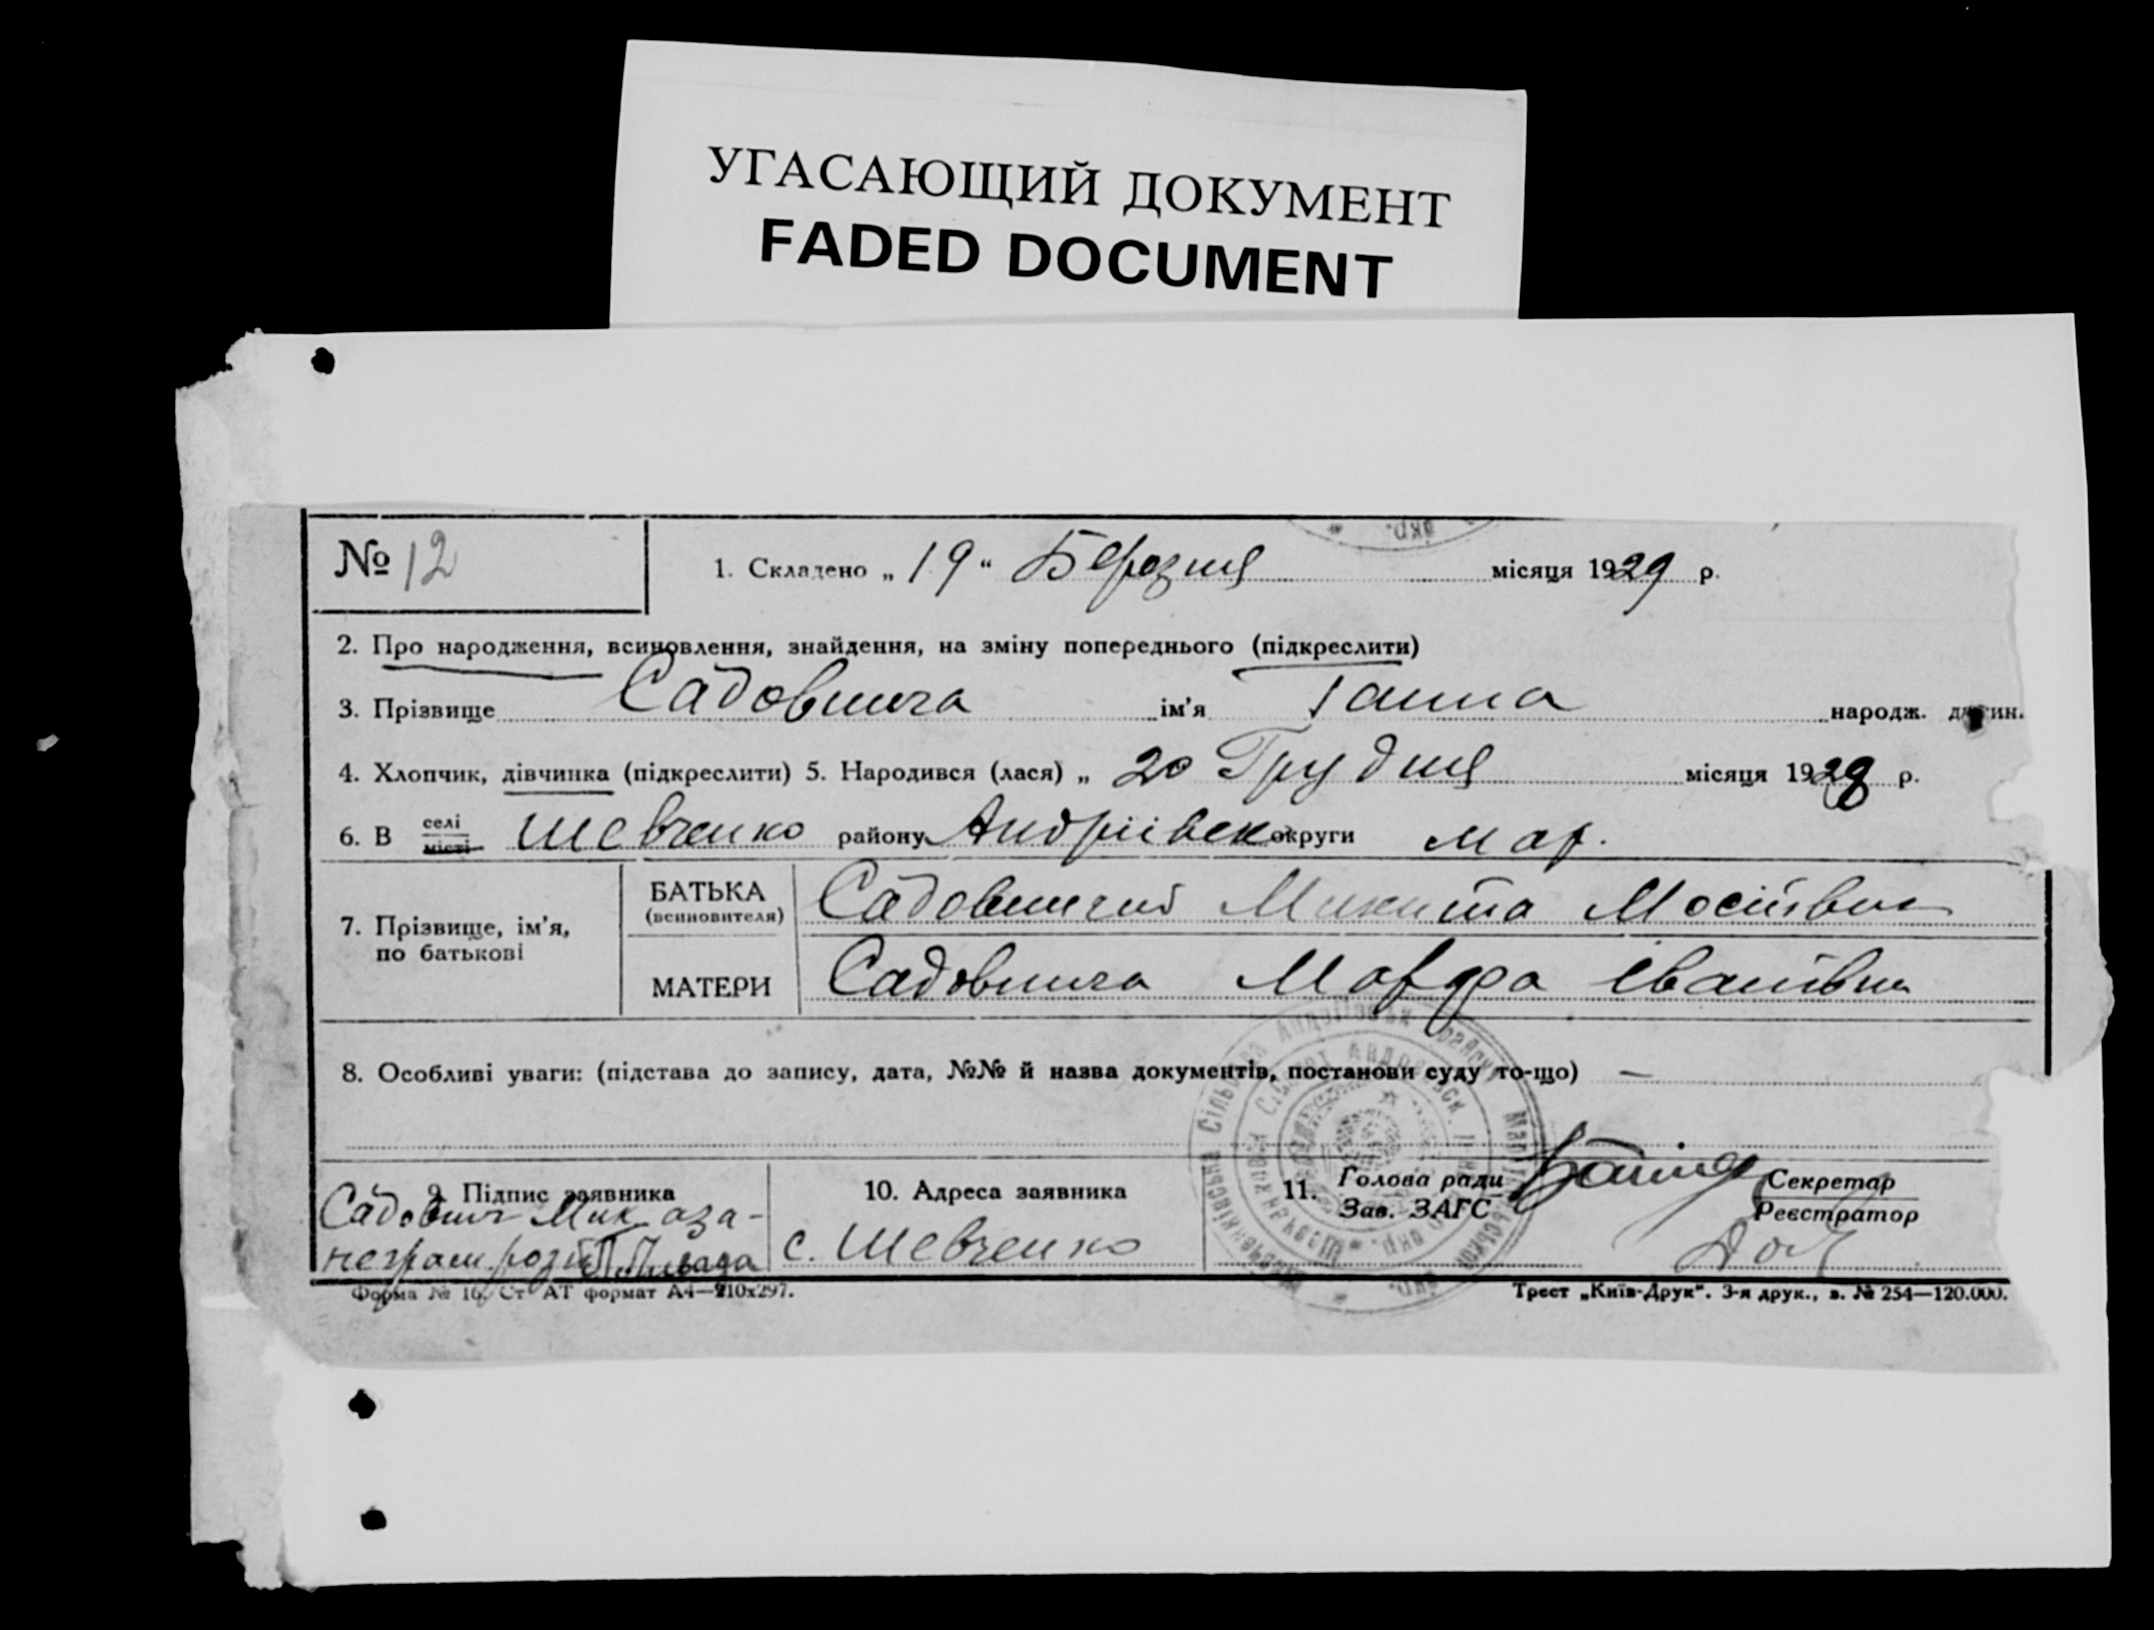 УГАСАЮЩИЙ ДОКУМЕНТ
FADED DOCUMENT
№ 12
1. Складено „ 19 “ Березня місяця 1929 р.
2. Про народження, всиновлення, знайдення, на зміну попереднього (підкреслити)
3. Прізвище Садовнича ім'я Ганна народж. дитин.
4. Хлопчик, дівчинка (підкреслити) 5. Народився (лася) „ 20 Грудня місяця 1928 р.
6. В селі місті Шевченко району Андріівск округи Мар.
7. Прізвище, ім'я, по батькові
БАТЬКА (всиновителя) Садовничий Микита
МАТЕРИ Садовнича Марфа Іванівна
8. Особливі уваги: (підстава до запису, дата, №№ й назва документів, постанови суду то-що) —
9. Підпис заявника
Садовнич Мик. аза-
неграм.
10. Адреса заявника
с. Шевченко
11. Голова ради
Зав. ЗАГС
Секретар
Реєстратор
Форма № 16. Ст АТ формат А4—210х297.
Трест „Київ-Друк“. 3-я друк., з. № 254—120.000.